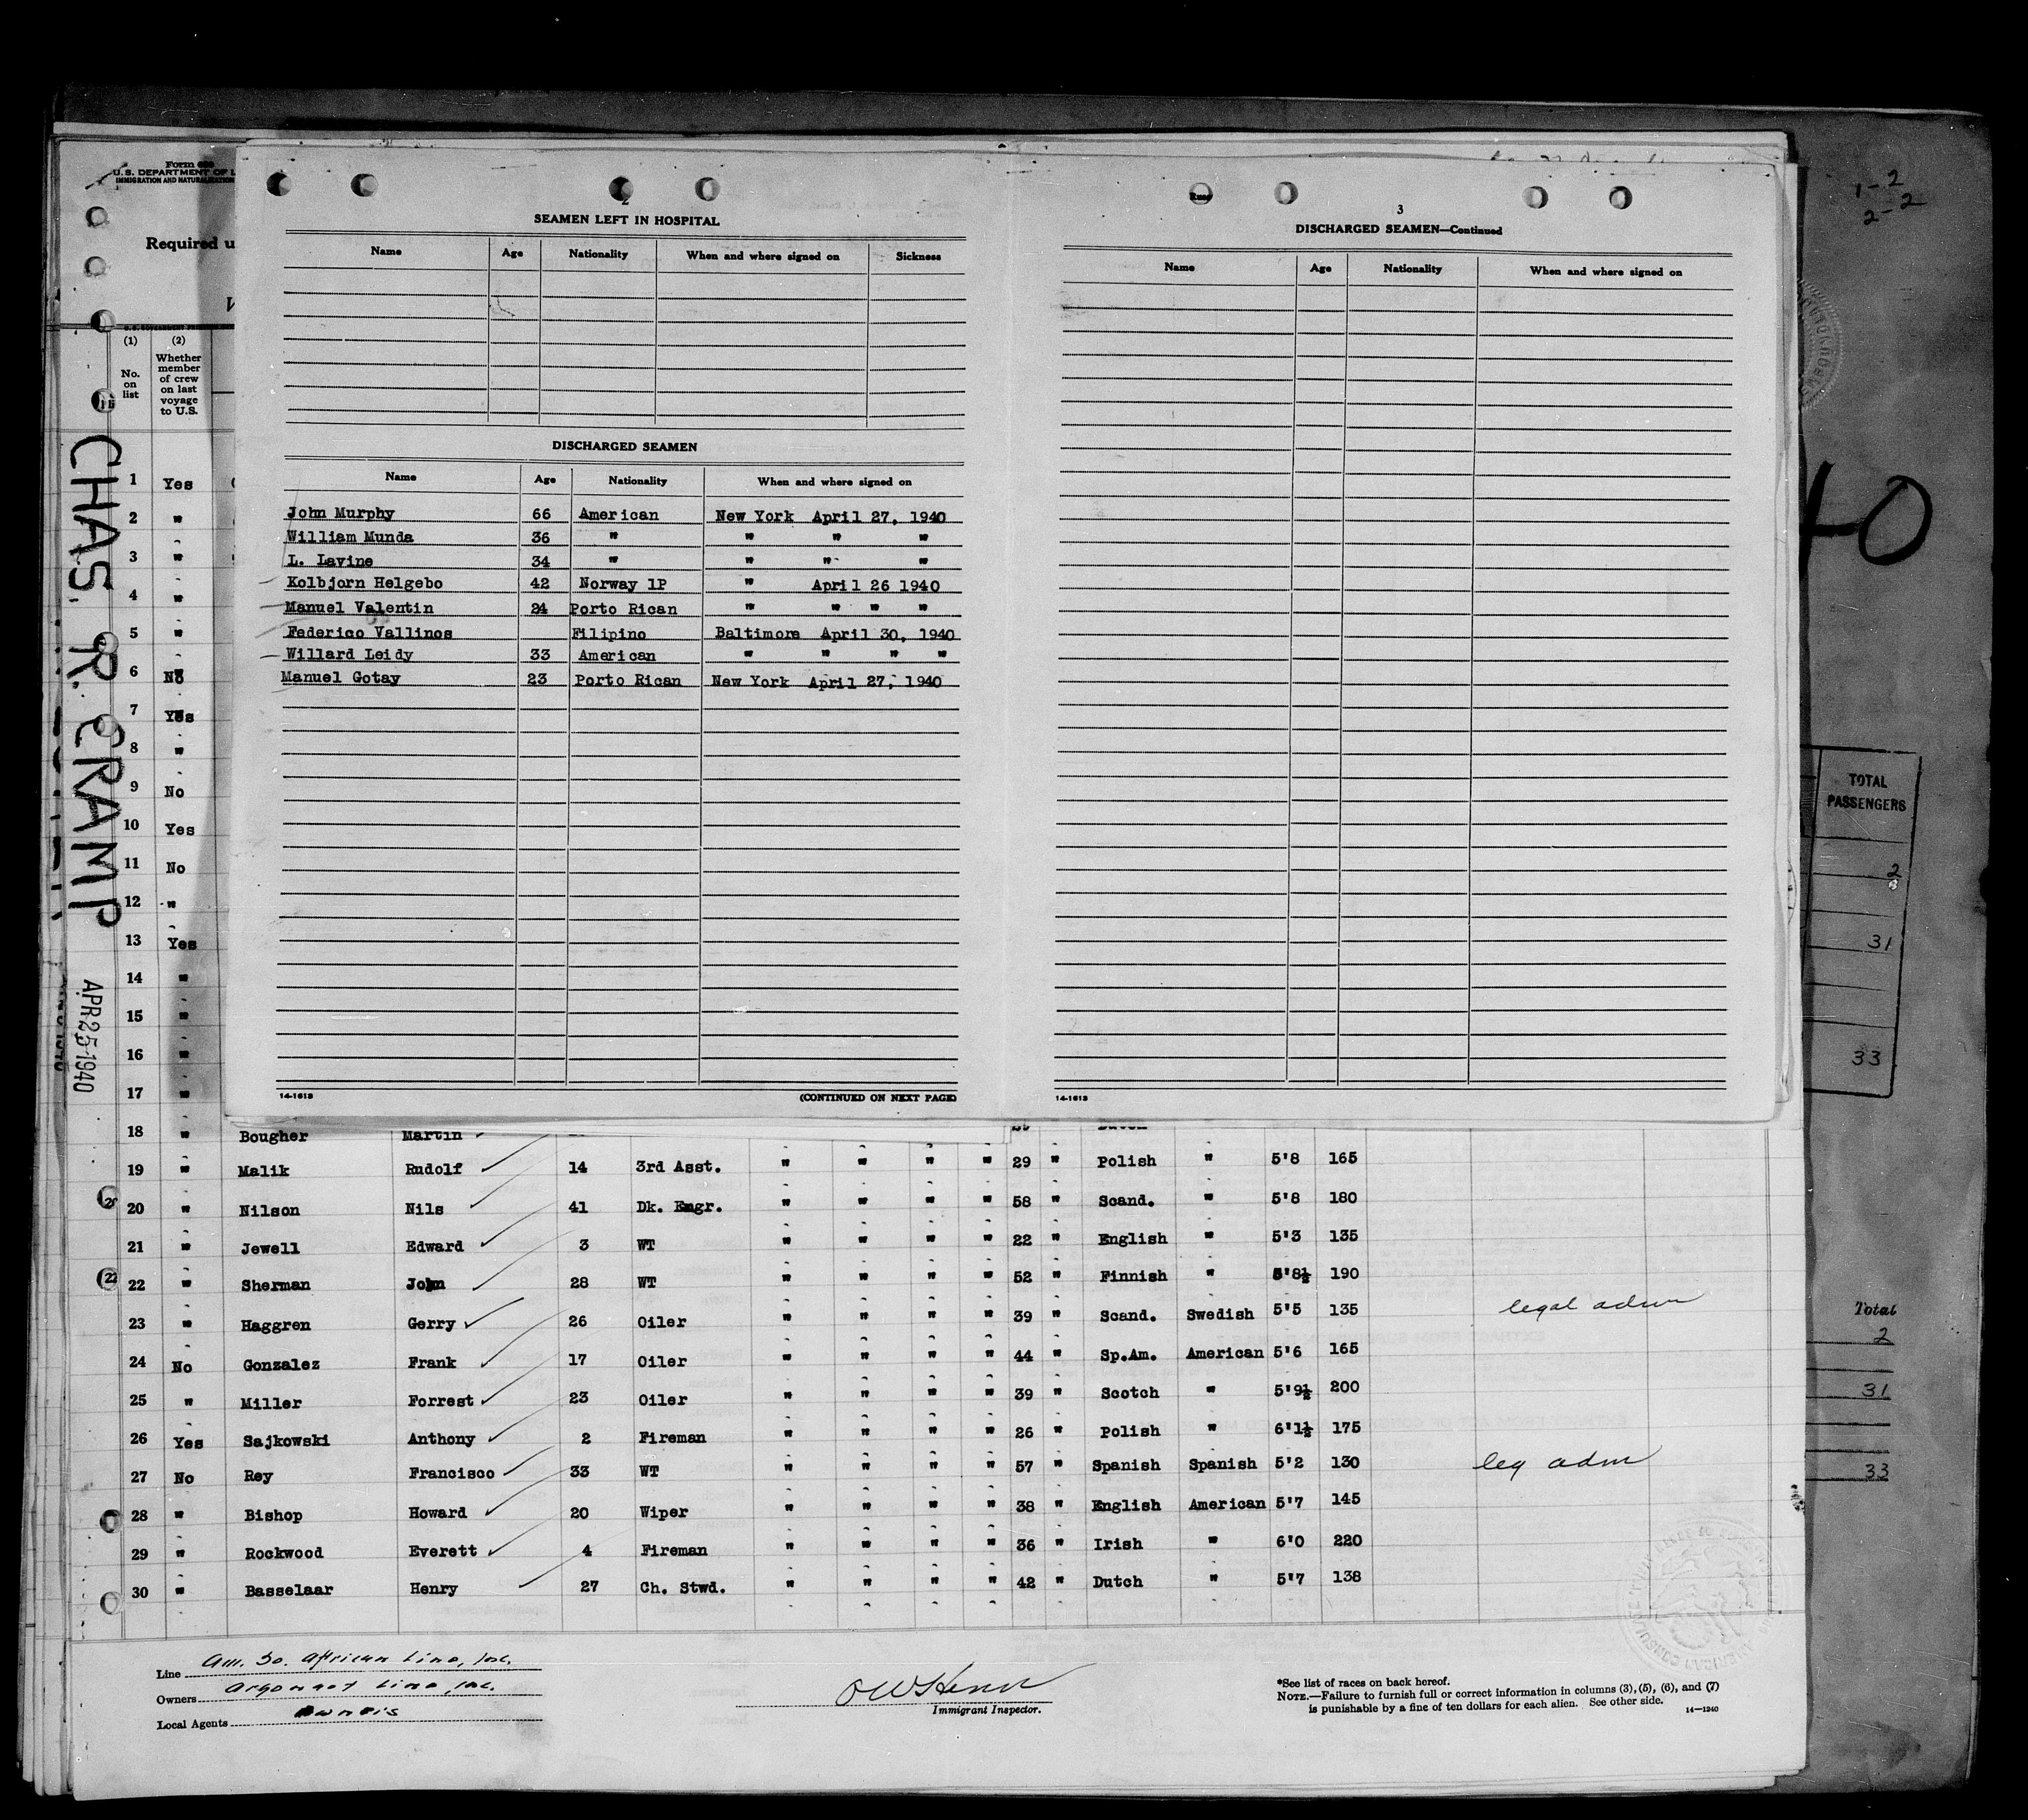 1-2
2-2
Form 689
U.S. DEPARTMENT OF L
IMMIGRATION AND NATURALIZATION
Required u
V
(1)
No.
on
list
(2)
Whether
member
of crew
on last
voyage
to U.S.
CHAS. R. CRAMP
APR 25 1940
1 Yes
2 "
3 "
4 "
5 "
6 No
7 Yes
8 "
9 No
10 Yes
11 No
12 "
13 Yes
14 "
15 "
16 "
17 "
2
SEAMEN LEFT IN HOSPITAL
Name Age Nationality When and where signed on Sickness
DISCHARGED SEAMEN
Name Age Nationality When and where signed on
John Murphy 66 American New York April 27, 1940
William Munda 36 " " " "
L. Lavine 34 " " " "
Kolbjorn Helgebo 42 Norway 1P " April 26 1940
Manuel Valentin 24 Porto Rican " " " "
Federico Vallinos Filipino Baltimore April 30, 1940
Willard Leidy 33 American " " " "
Manuel Gotay 23 Porto Rican New York April 27, 1940
14-1613 (CONTINUED ON NEXT PAGE)
3
DISCHARGED SEAMEN—Continued
Name Age Nationality When and where signed on
14-1613
40
TOTAL
PASSENGERS
2
31
33
18 " Bougher Martin
19 " Malik Rudolf 14 3rd Asst. " " " " 29 " Polish " 5'8 165
20 " Nilson Nils 41 Dk. Engr. " " " " 58 " Scand. " 5'8 180
21 " Jewell Edward 3 WT " " " " 22 " English " 5'3 135
22 " Sherman John 28 WT " " " " 52 " Finnish " 5'8½ 190
23 " Haggren Gerry 26 Oiler " " " " 39 " Scand. Swedish 5'5 135 legal adm
24 No Gonzalez Frank 17 Oiler " " " " 44 " Sp.Am. American 5'6 165
25 " Miller Forrest 23 Oiler " " " " 39 " Scotch " 5'9½ 200
26 Yes Sajkowski Anthony 2 Fireman " " " " 26 " Polish " 6'1½ 175
27 No Rey Francisco 33 WT " " " " 57 " Spanish Spanish 5'2 130 leg adm
28 " Bishop Howard 20 Wiper " " " " 38 " English American 5'7 145
29 " Rockwood Everett 4 Fireman " " " " 36 " Irish " 6'0 220
30 " Basselaar Henry 27 Ch. Stwd. " " " " 42 " Dutch " 5'7 138
Total
2
31
33
Line Am. So. African Line, Inc.
Owners Argonaut Line, Inc.
Local Agents Owners
Immigrant Inspector.
*See list of races on back hereof.
NOTE.—Failure to furnish full or correct information in columns (3), (5), (6), and (7)
is punishable by a fine of ten dollars for each alien. See other side.
14—1240